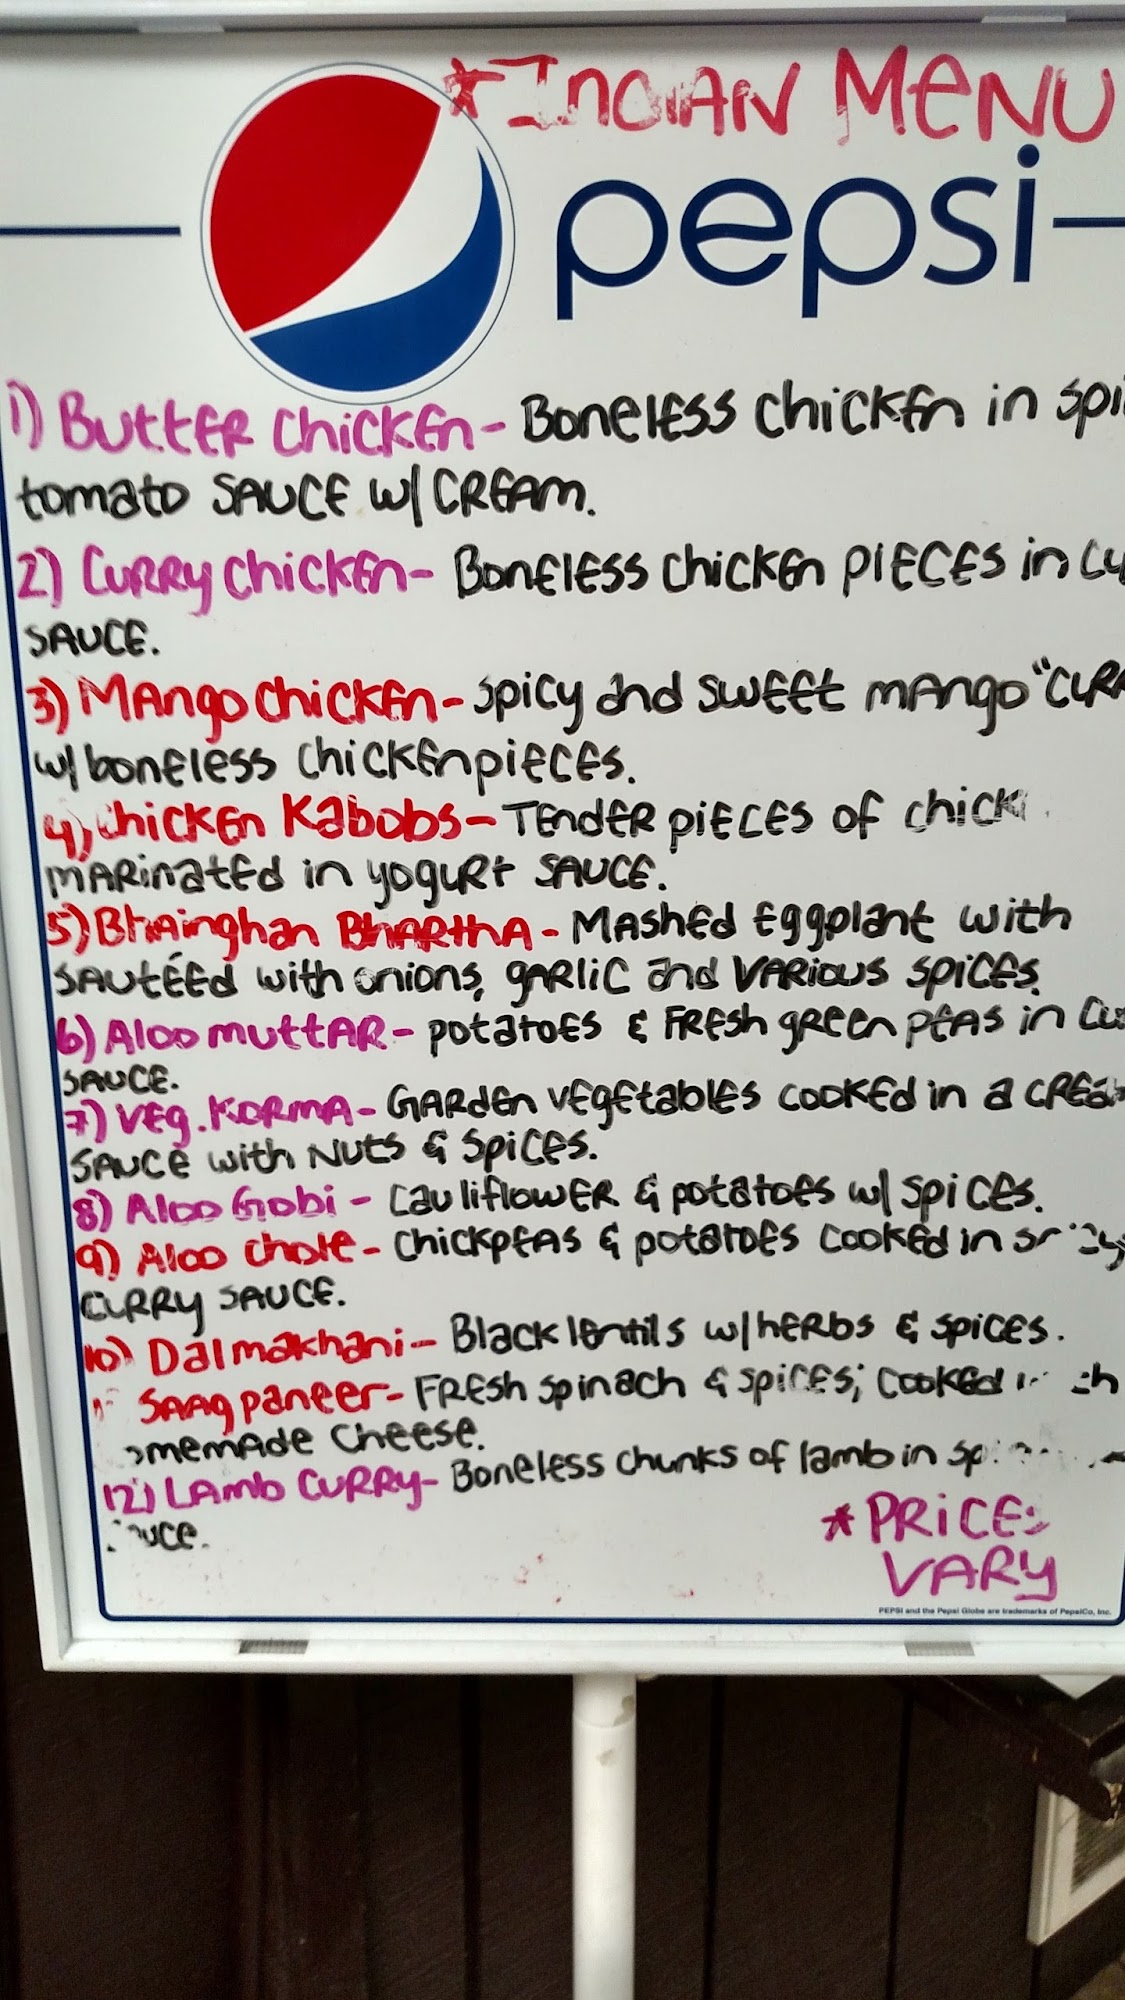 *INDIAN MENU
pepsi
1) Butter Chicken- Boneless chicken in
tomato sauce w/ cream.
2) Curry Chicken- Boneless chicken pieces in
sauce.
3) Mango Chicken- spicy and sweet mango
w/ boneless chicken pieces.
4) Chicken Kabobs- Tender pieces of
marinated in yogurt sauce.
5) Bhainghan Bhartha- Mashed eggplant with
sautéed with onions, garlic and various spices.
6) Aloo muttar- potatoes & Fresh green peas in
sauce.
7) Veg. Korma- Garden vegetables cooked in a
sauce with Nuts & Spices.
8) Aloo Gobi- cauliflower & potatoes w/ spices.
9) Aloo chole- chickpeas & potatoes cooked in
curry sauce.
10) Dal makhani- Black lentils w/ herbs & spices.
Saag paneer- Fresh spinach & spices; cooked
cheese.
12) Lamb Curry- Boneless chunks of lamb in
*PRICES
VARY
PEPSI and the Pepsi Globe are trademarks of PepsiCo, Inc.